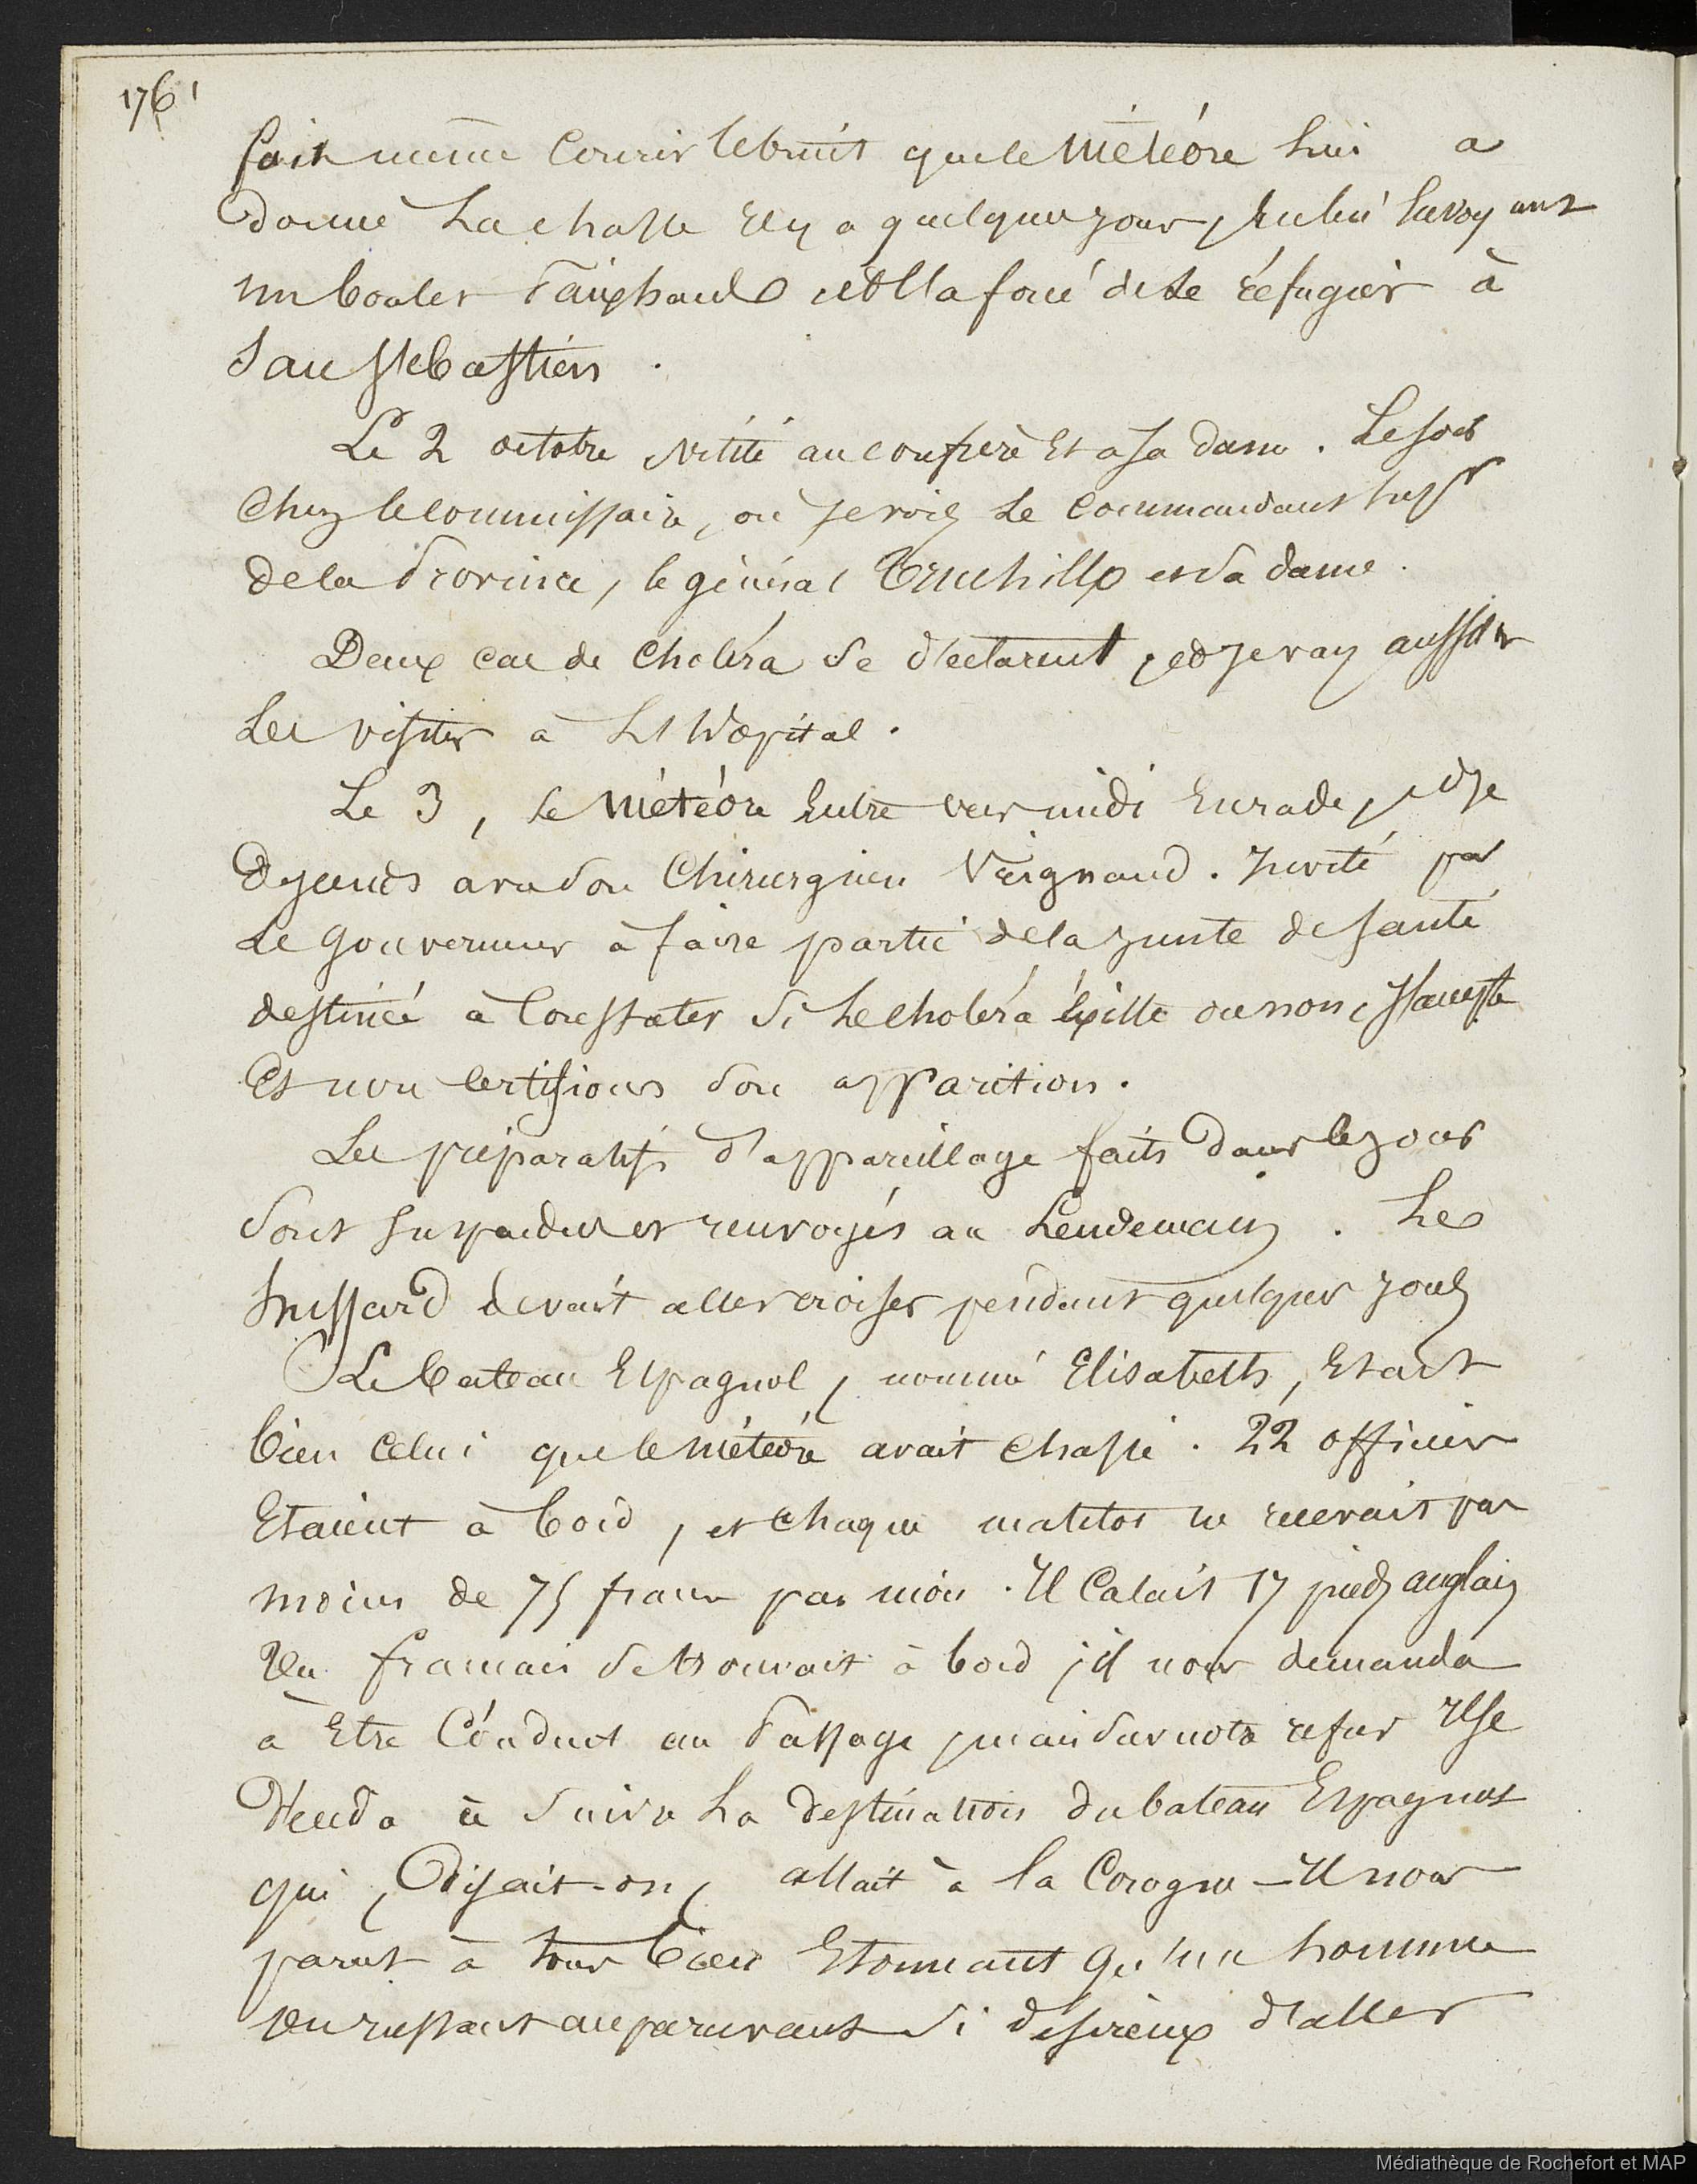 176
fait même courir le bruit que le Météore lui a
donné la chasse il y a quelques jours, en lui envoyant
un boulet d'aix haut, et l'a forcé de se réfugier à
San Sebastien.
Le 2 octobre visite au confrère et a sa dame. Le soir
chez le commissaire, où je vois le commandant sup.r
de la Province, le général Truchillo et sa dame.
Deux cas de choléra se déclarent, et je vais aussitôt
les visiter à l'hôpital.
Le 3, le Météore entre vers midi en rade, et je
déjeunes avec son chirurgien Veignaud. Invité par
le gouverneur à faire partie de la junte de santé
destinée à constater si le choléra existe ou non, j'accepte
et nous certifions son apparition.
Les préparatifs d'appareillage faits dans le jour
sont suspendus et renvoyés au lendemain. Le
hussard devait aller croiser pendant quelques jours
Le bateau Espagnol, nommé Elisabeth, etait
bien celui que le météore avait chassé. 22 officiers
Etaient à bord, et chaque matelot ne recevait pas
moins de 75 francs par mois. Il calait 17 pieds anglais
Un français se trouvait à bord, il nous demanda
à Etre conduit au Passage, mais sur notre refus Il se
décida à suivre la destination du bateau Espagnol
qui, disait-on, allait à la Corogne - Il nous
parut à tous bien Etonnant qu'un homme
en auparavant si désireux d'aller
Médiathèque de Rochefort et MAP